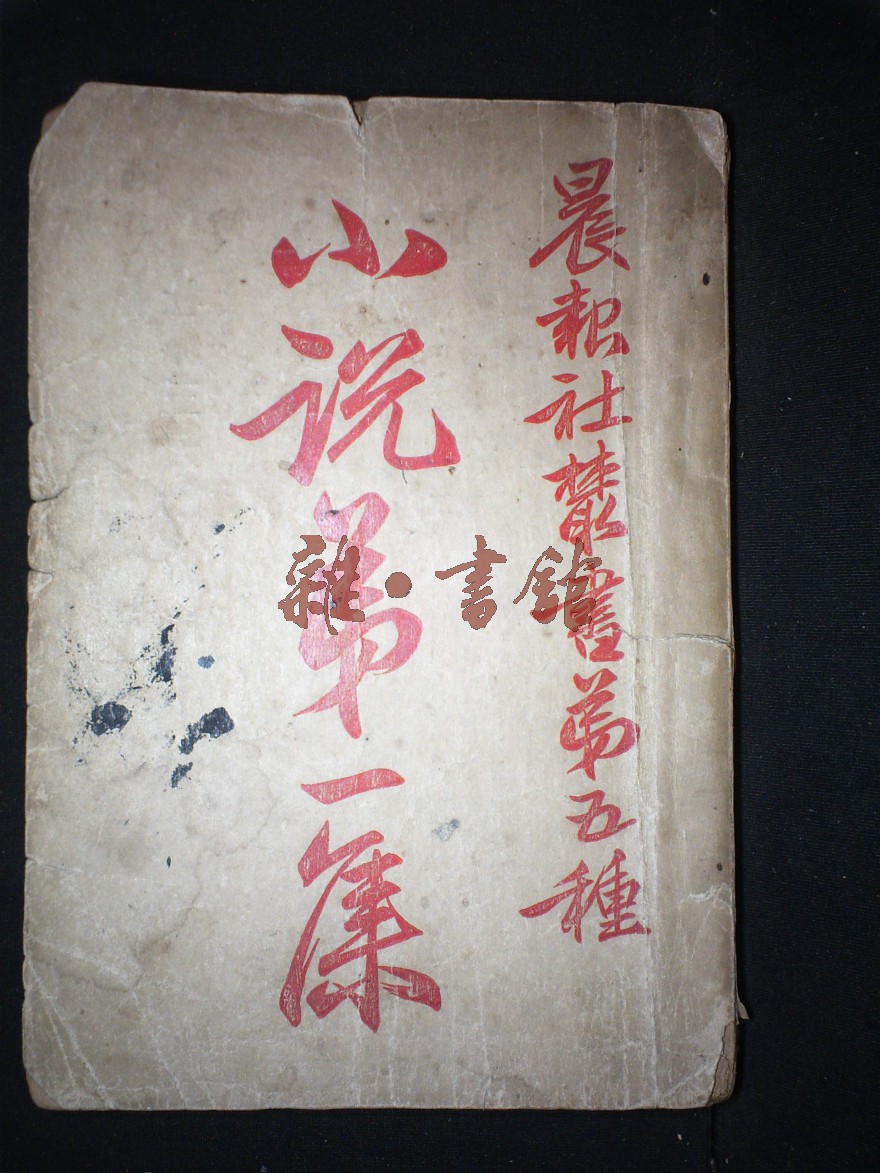 晨報社叢書第五種
小说第一集
雜·書館